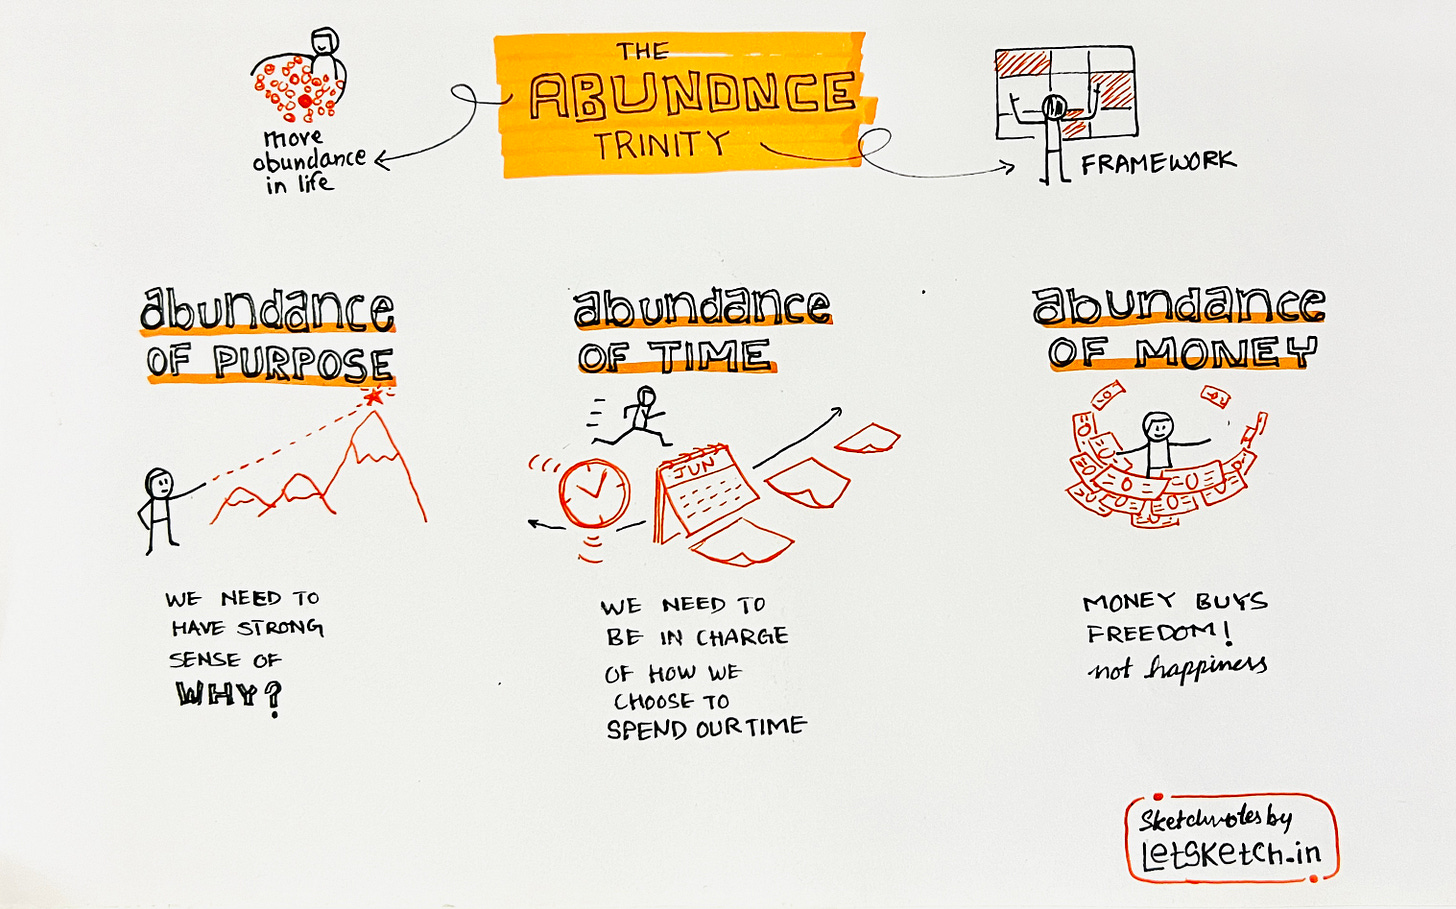 THE
ABUNDNCE
TRINITY
more
abundance
in life
FRAMEWORK
abundance
OF PURPOSE
WE NEED TO
HAVE STRONG
SENSE OF
WHY?
abundance
OF TIME
JUN
WE NEED TO
BE IN CHARGE
OF HOW WE
CHOOSE TO
SPEND OUR TIME
abundance
OF MONEY
MONEY BUYS
FREEDOM!
not happiness
Sketchnotes by
LetSketch.in